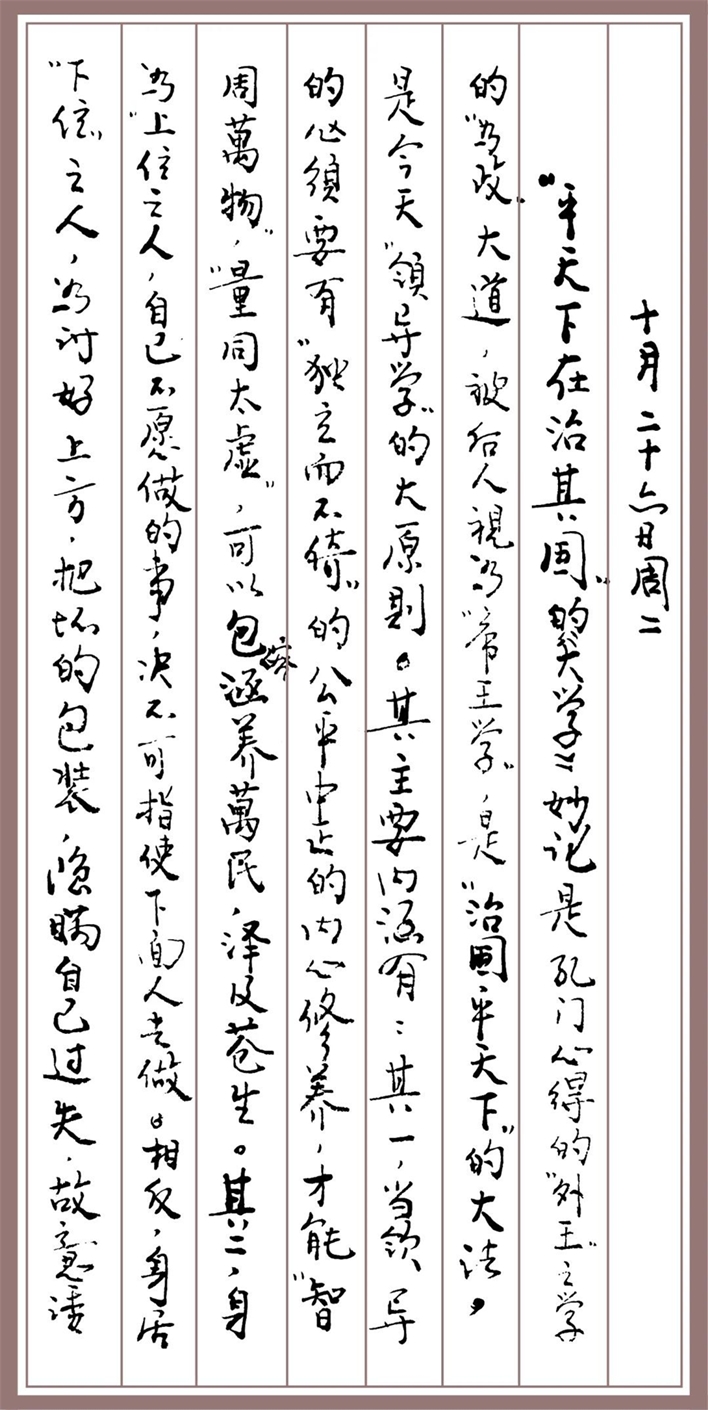 十月二十六日周二
“平天下在治其国”的大学之妙论是孔门心得的“外王”之学
的“为政”大道，被后人视为“帝王学”，是“治国平天下”的大法，
是今天“领导学”的大原则。其主要内涵有：其一，当领导
的必须要有“独立而不倚”的公平中正的内心修养，才能“智
周萬物”，“量同太虚”，可以包涵容养萬民，泽及苍生。其二，身
为“上位之人，自己不愿做的事，决不可指使下面人去做。相反，身居
“下位”之人，为讨好上方，把坏的包装，隐瞒自己过失，故意